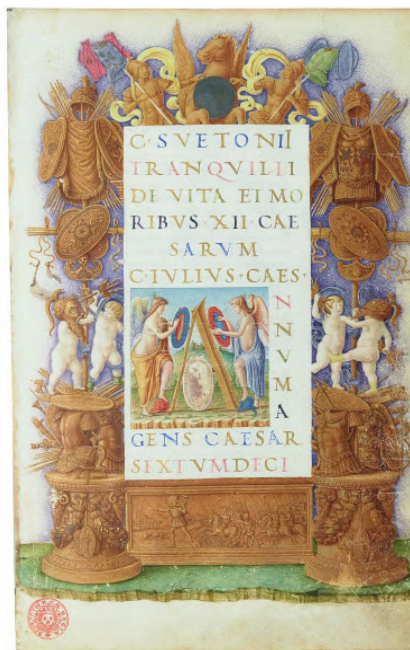 C·SVETONII
TRANQVILLI
DE VITA ET MO
RIBVS·XII·CAE
SARVM
C·IVLIVS·CAES·
A
N
N
V
M
A
GENS CAESAR
SEXTVMDECI